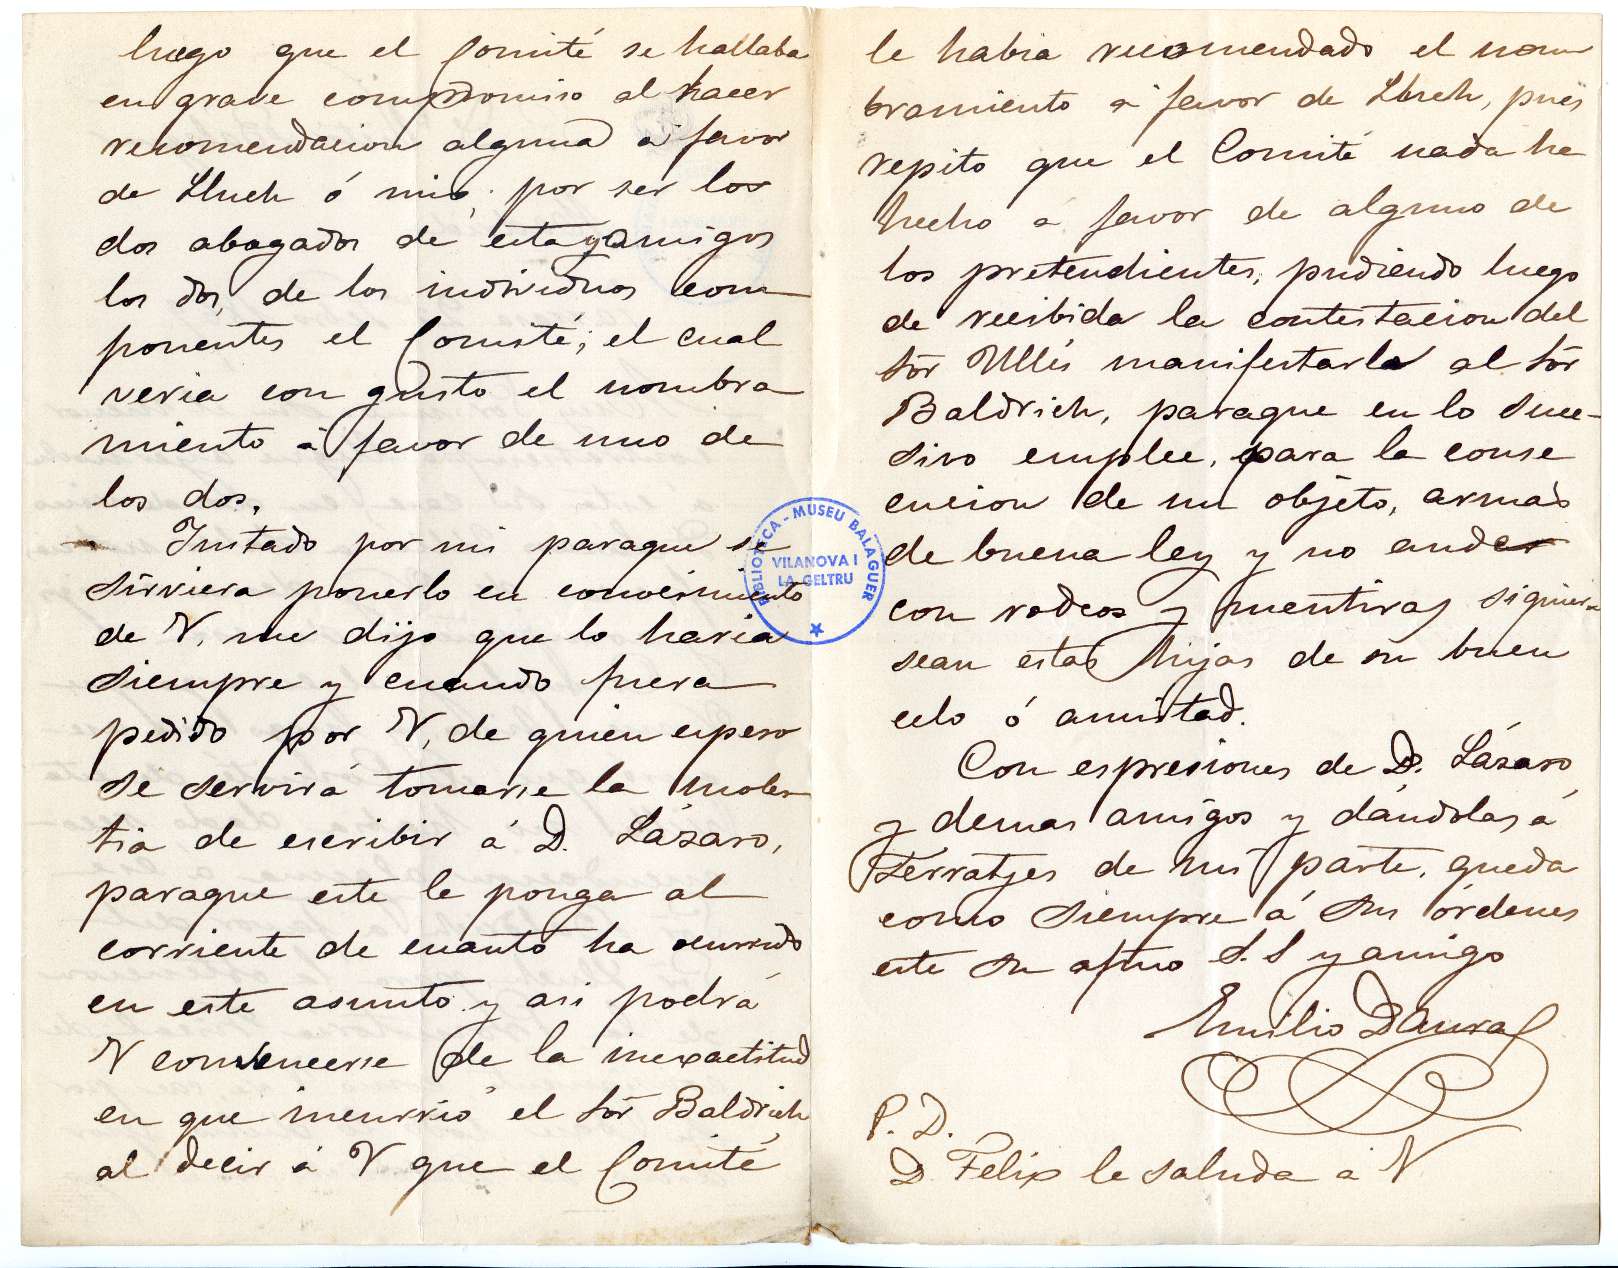 luego que el Comité se hallaba
en grave compromiso al hacer
recomendacion alguna á favor
de Lluch ó mio, por ser los
dos abogados de esta y amigos
los dos, de los individuos com
ponentes el Comité; el cual
veria con gusto el nombra
miento á favor de uno de
los dos.
Instado por mi paraque se
sirviera ponerlo en conocimiento
de V. me dijo que lo haria
siempre y cuando fuera
pedido por V, de quien espero
se servirá tomarse la moles
tia de escribir á D. Lázaro,
paraque este le ponga al
corriente de cuanto ha ocurrido
en este asunto y asi podrá
V convencerse de la inexactitud
en que incurrió el Sór Baldrich
al decir á V que el Comité
le habia recomendado el nom
bramiento á favor de Lluch, pues
repito que el Comité nada ha
hecho á favor de alguno de
los pretendientes, pudiendo luego
de recibida la contestacion del
Sór Ullés manifestarla al Sór
Baldrich, paraque en lo suce-
sivo emplee, para la conse
cucion de un objeto, armas
de buena ley y no ander
con rodeos y mentiras siquiera
sean estas hijas de su buen
celo ó amistad.
Con espresiones de D. Lázaro
y demas amigos y dándolas á
Ferratjes de mi parte, queda
como siempre á sus órdenes
este su afmo S. S y amigo
Emilio Daura
P. D.
D. Félix le saluda á V
BIBLIOTECA - MUSEU BALAGUER
VILANOVA I
LA GELTRU